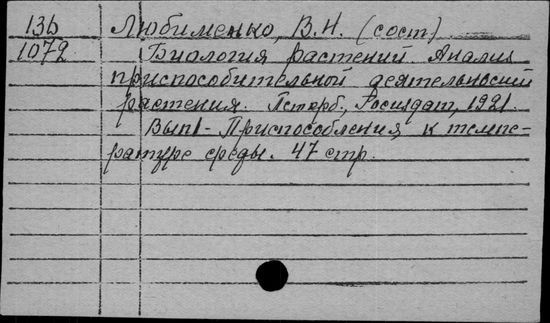 136 Любименко, В.Н. (сост)
1072 Биология растений. Анализ
приспособительной деятельности
растения. Петерб., Госиздат, 1921.
Вып1 - Приспособления к темпе-
ратуре среды. 47 стр.